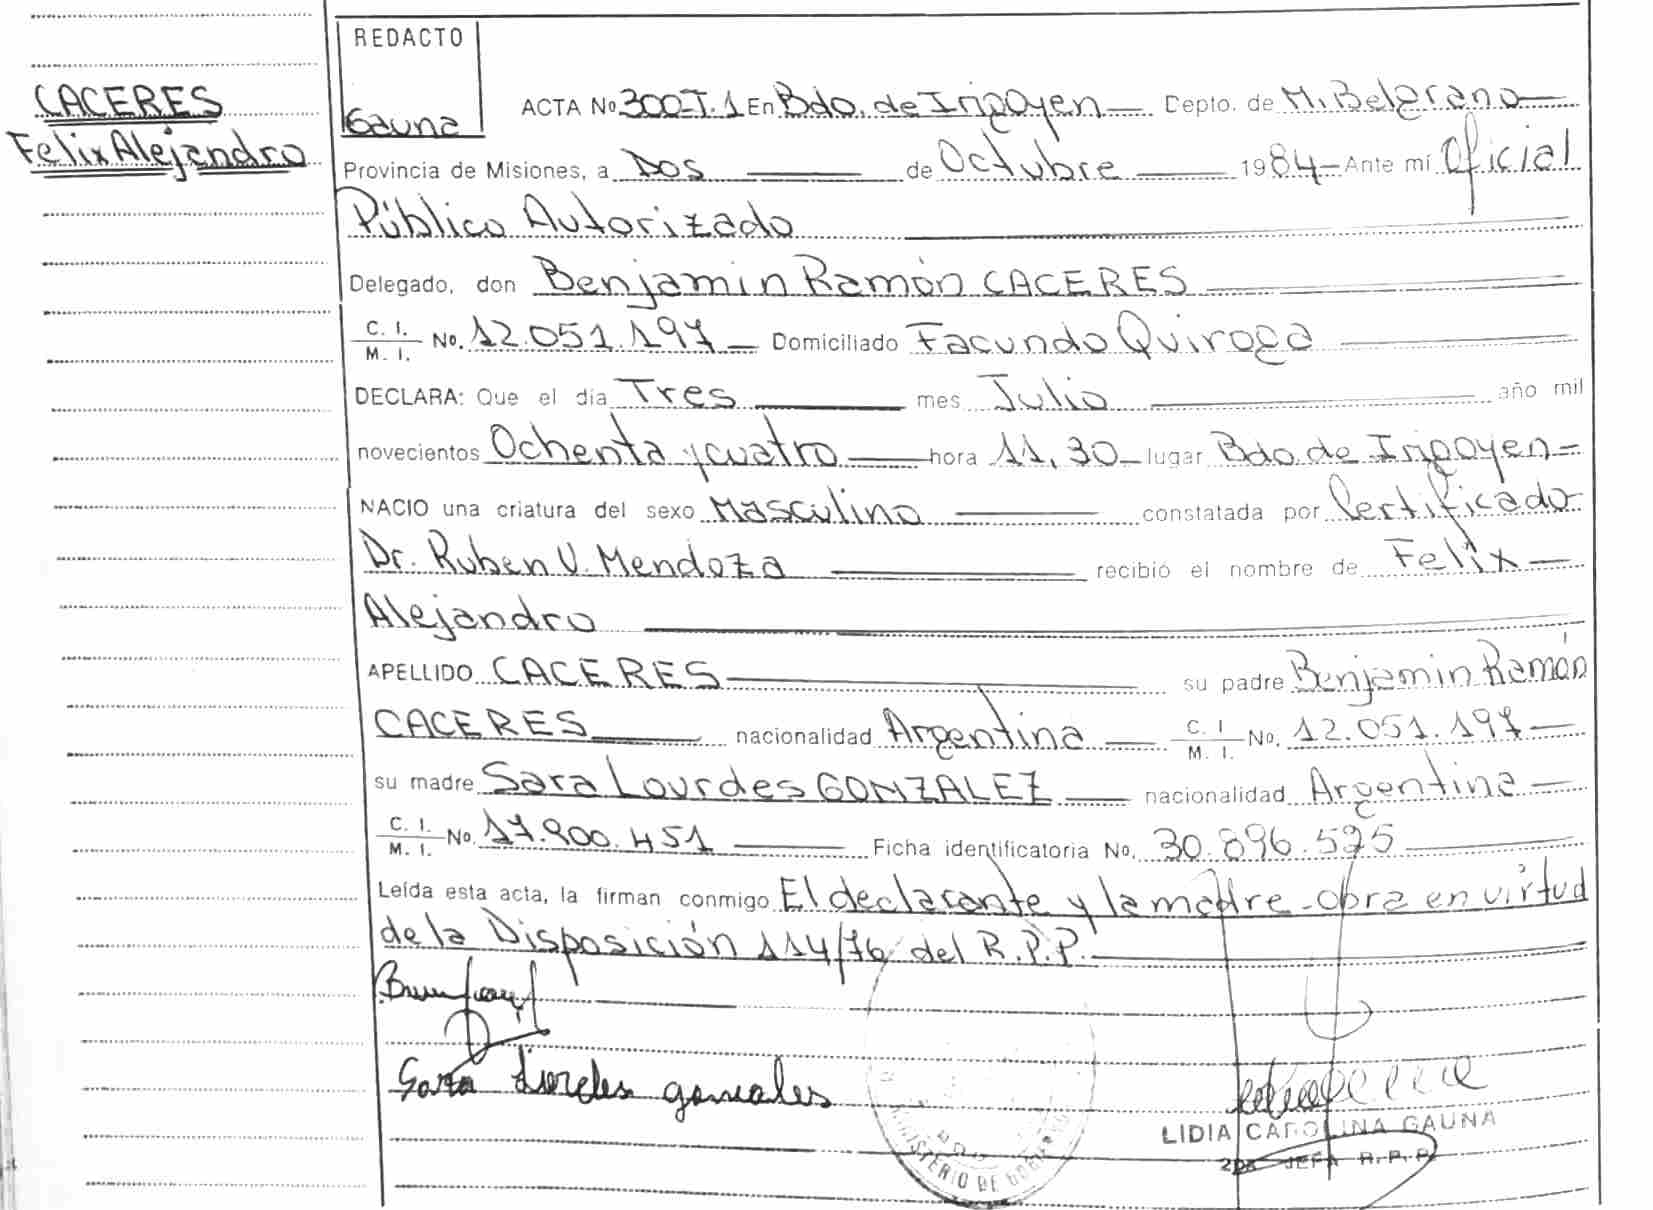 CACERES
Felix Alejandro
REDACTO
Gauna
ACTA No 300-T.1 En Bdo. de Irigoyen — Depto. de M. Belgrano —
Provincia de Misiones, a Dos — de Octubre — 1984 — Ante mí Oficial
Público Autorizado
Delegado, don Benjamin Ramón CACERES
C. I. / M. I. No. 12.051.197 — Domiciliado Facundo Quiroga
DECLARA: Que el día Tres — mes Julio — año mil
novecientos Ochenta y cuatro — hora 11,30 — lugar Bdo. de Irigoyen —
NACIO una criatura del sexo Masculino — constatada por Certificado
Dr. Ruben V. Mendoza — recibió el nombre de Felix —
Alejandro
APELLIDO CACERES — su padre Benjamin Ramón
CACERES — nacionalidad Argentina — C. I. / M. I. No. 12.051.197 —
su madre Sara Lourdes GONZALEZ — nacionalidad Argentina —
C. I. / M. I. No. 17.900.451 — Ficha identificatoria No. 30.896.525
Leída esta acta, la firman conmigo El declarante y la madre - obra en virtud
de la Disposición 114/76 del R.P.P.
Sara Lurdes gonzales
MINISTERIO DE GOBIERNO
LIDIA CAROLINA GAUNA
2da JEFA R.P.P.